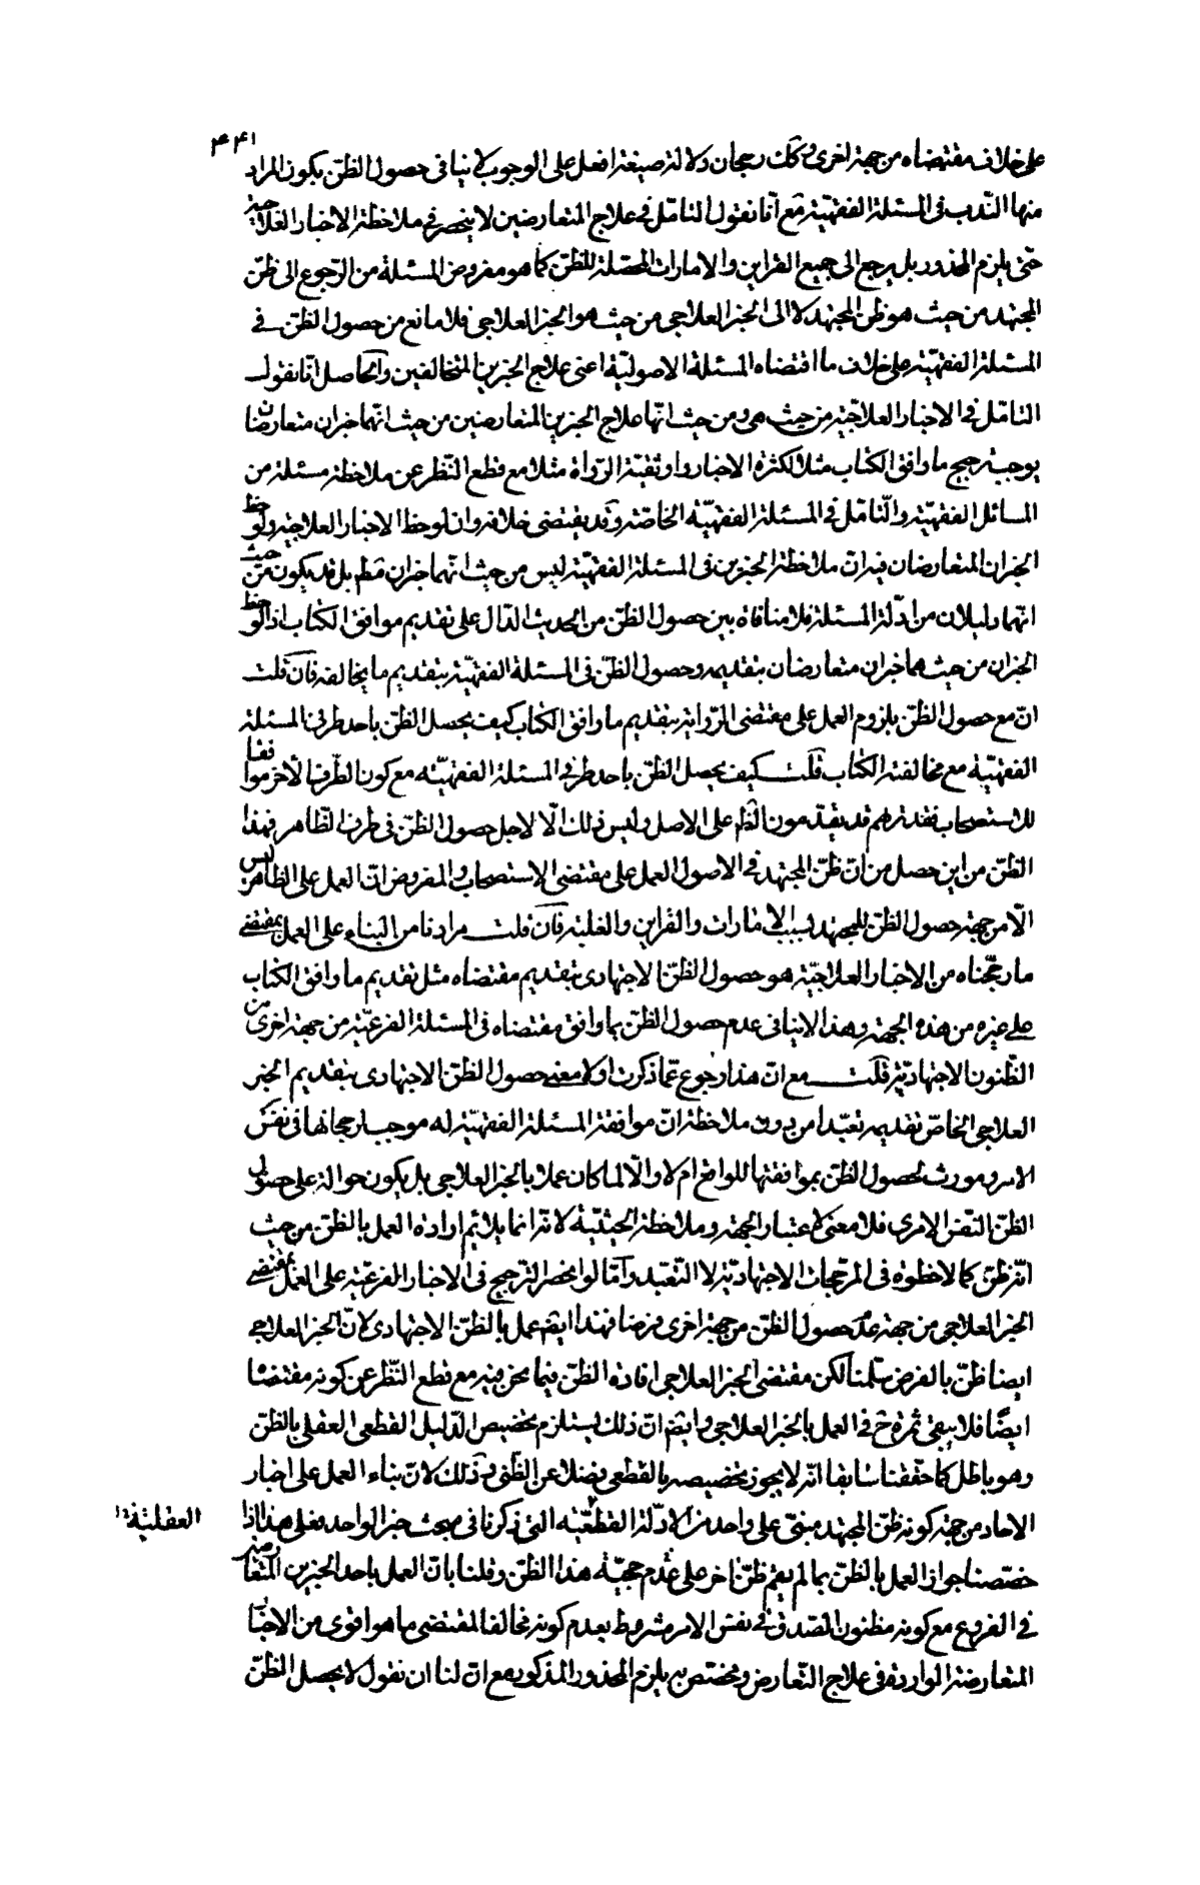 ۴۴۱
على خلاف مقتضاه من جهة اخرى وكك رجحان دلالة صيغة افعل على الوجوب لا ينافى حصول الظن بكون المراد
منها الندب فى المسئلة الفقهيّة مع انا نقول التامّل فى علاج المتعارضين لا ينحصر فى ملاحظة الاخبار العلاجية
حتى يلزم المحذور بل يرجع الى جميع القراين والامارات المحصّلة للظنّ كما هو مفروض المسئلة من الرّجوع الى ظنّ
المجتهد من حيث هو ظن المجتهد لا الى الخبر العلاجى من حيث هو الخبر العلاجى فلا مانع من حصول الظن فى
المسئلة الفقهيّة على خلاف ما اقتضاه المسئلة الاصوليّة اعنى علاج الخبرين المتخالفين والحاصل انّا نقول
التامّل فى الاخبار العلاجيّة من حيث هى ومن حيث انّها علاج الخبرين المتعارضين من حيث انّهما خبران متعارضان
يوجب ترجيح ما وافق الكتاب مثلا لكثرة الاخبار واوثقيّة الرّواة مثلا مع قطع النّظر عن ملاحظة مسئلة من
المسائل الفقهيّة والتّامّل فى المسئلة الفقهيّة الخاصّة وقد يقتضى خلافه وان لوحظ الاخبار العلاجية ولوحظ
الخبران المتعارضان فيه لانّ ملاحظة الخبرين فى المسئلة الفقهيّة ليس من حيث انّهما خبران فقط بل قد يكون من حيث
انّهما دليلان من ادّلة المسئلة فلا منافاة بين حصول الظنّ من الحديث الدّال على تقديم موافق الكتاب اذا لوحظ
الخبران من حيث هما خبران متعارضان بتقديمه وحصول الظنّ فى المسئلة الفقهيّة بتقديم ما يخالفه فان قلت
انّ مع حصول الظنّ بلزوم العمل على مقتضى الرّواية بتقديم ما وافق الكتاب كيف يحصل الظنّ باحد طرفى المسئلة
الفقهيّة مع مخالفة الكتاب قلت كيف يحصل الظنّ باحد طرفى المسئلة الفقهيّة مع كون الطّرف الآخر موافقا
للاستصحاب فقد تريهم قد يقدّمون الظّم على الاصل وليس ذلك الّا لاجل حصول الظنّ فى طرف الظّاهر فهذا
الظنّ من اين حصل من انّ ظنّ المجتهد فى الاصول العمل على مقتضى الاستصحاب والمفروض انّ العمل على الظاهر ليس
الّا من جهة حصول الظنّ للمجتهد بسبب الامارات والقراين والغلبة فان قلت مرادنا من البناء على العمل بمقتضى
ما رجّحناه من الاخبار العلاجيّة هو حصول الظنّ الاجتهادى بتقديم مقتضاه مثل تقديم ما وافق الكتاب
على غيره من هذه الجهة وهذا لا ينافى عدم حصول الظنّ بما وافق مقتضاه فى المسئلة الفرعيّة من جهة اخرى من
الظّنون الاجتهاديّة قلت مع انّ هذا رجوع عمّا ذكرت اولا معنى حصول الظنّ الاجتهادى بتقديم الخبر
العلاجى الخاصّ تقديمه تعبّدا من دون ملاحظة انّ موافقة المسئلة الفقهيّة له موجب لرجحانها فى نفس
الامر ومورث لحصول الظنّ بموافقتها للواقع ام لا والّا لما كان عملا بالخبر العلاجى بل يكون حوالة على حصول
الظنّ النّفس الامرى فلا معنى لاعتبار الجهة وملاحظة الحيثيّة لانه انما يلائم ارادة العمل بالظنّ من حيث
انّه ظنّ كما لاحظوه فى المرجّحات الاجتهاديّة لا التعبّد وامّا لو انحصر الترجيح فى الاخبار الفرعيّة على العمل بمقتضى
الخبر العلاجى من جهة عدم حصول الظنّ من جهة اخرى فرضا فهذا ايضم عمل بالظنّ الاجتهادى لانّ الخبر العلاجى
ايضا ظنّ بالفرض سلّمنا لكن مقتضى الخبر العلاجى افادة الظنّ فيما نحن فيه مع قطع النّظر عن كونه مقتضاه
ايضًا فلا يبقى ثمرة ح فى العمل بالخبر العلاجى وايضم انّ ذلك يستلزم تخصيص الدّليل القطعى العقلى بالظنّ
وهو باطل كما حقّقنا سابقا انّه لا يجوز تخصيصه بالقطعى فضلا عن الظّنى وذلك لانّ بناء العمل على اخبار
الاحاد من جهة كونه ظنّ المجتهد مبنىّ على واحد من الادّلة القطعيّة التى ذكرنا فى مبحث خبر الواحد فعلى هذا اذا
العقليّة
خصّصنا جواز العمل بالظنّ بما لم يقم ظنّ اخر على عدم حجيّة هذا الظنّ وقلنا بانّ العمل باحد الخبرين المتعارضين
فى الفروع مع كونه مظنون الصّدق فى نفس الامر مشروط بعدم كونه مخالفا لمقتضى ما هو اقوى من الاخبار
المتعارضة الواردة فى علاج التّعارض ومختص به يلزم المحذور المذكور مع انّ لنا ان نقول لا يحصل الظنّ